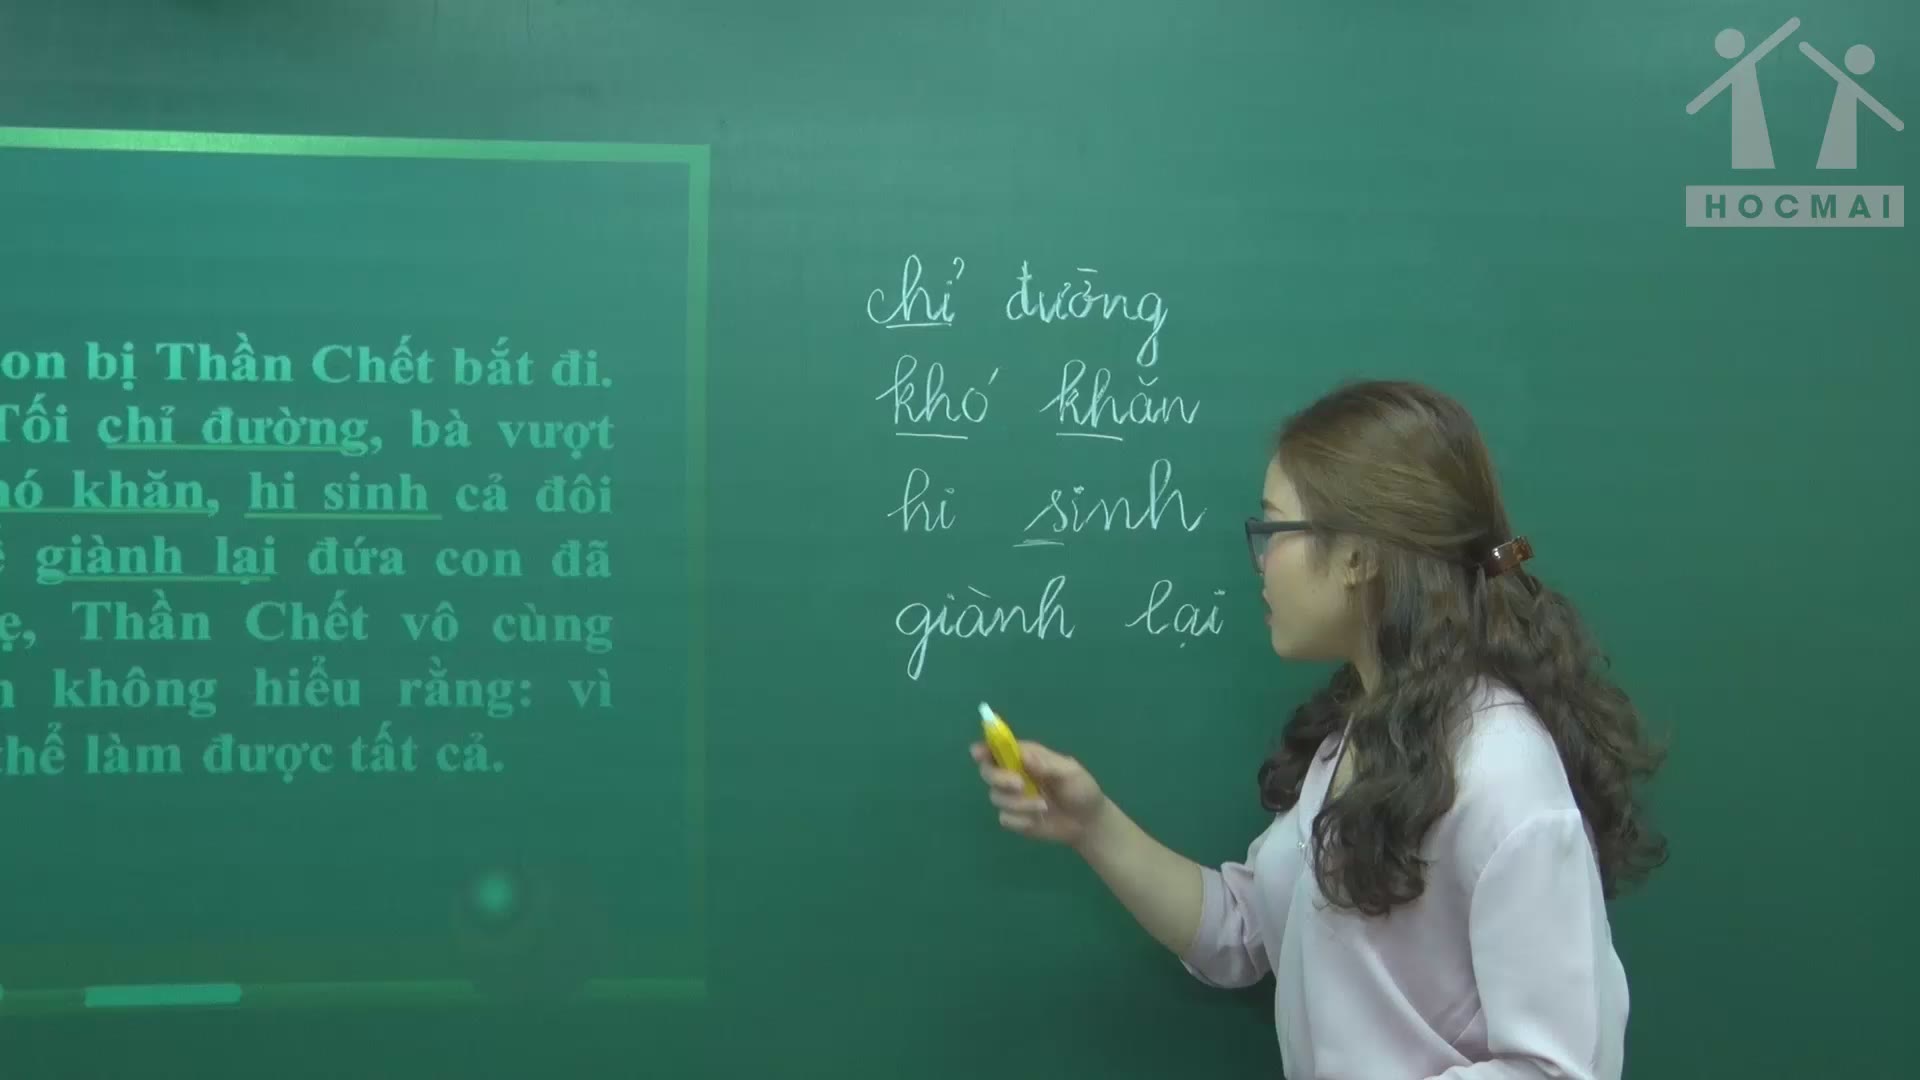 HOCMAI
on bị Thần Chết bắt đi.
Tối chỉ đường, bà vượt
khăn, hi sinh cả đôi
giành lại đứa con đã
Thần Chết vô cùng
không hiểu rằng: vì
làm được tất cả.
chỉ đường
khó khăn
hi sinh
giành lại